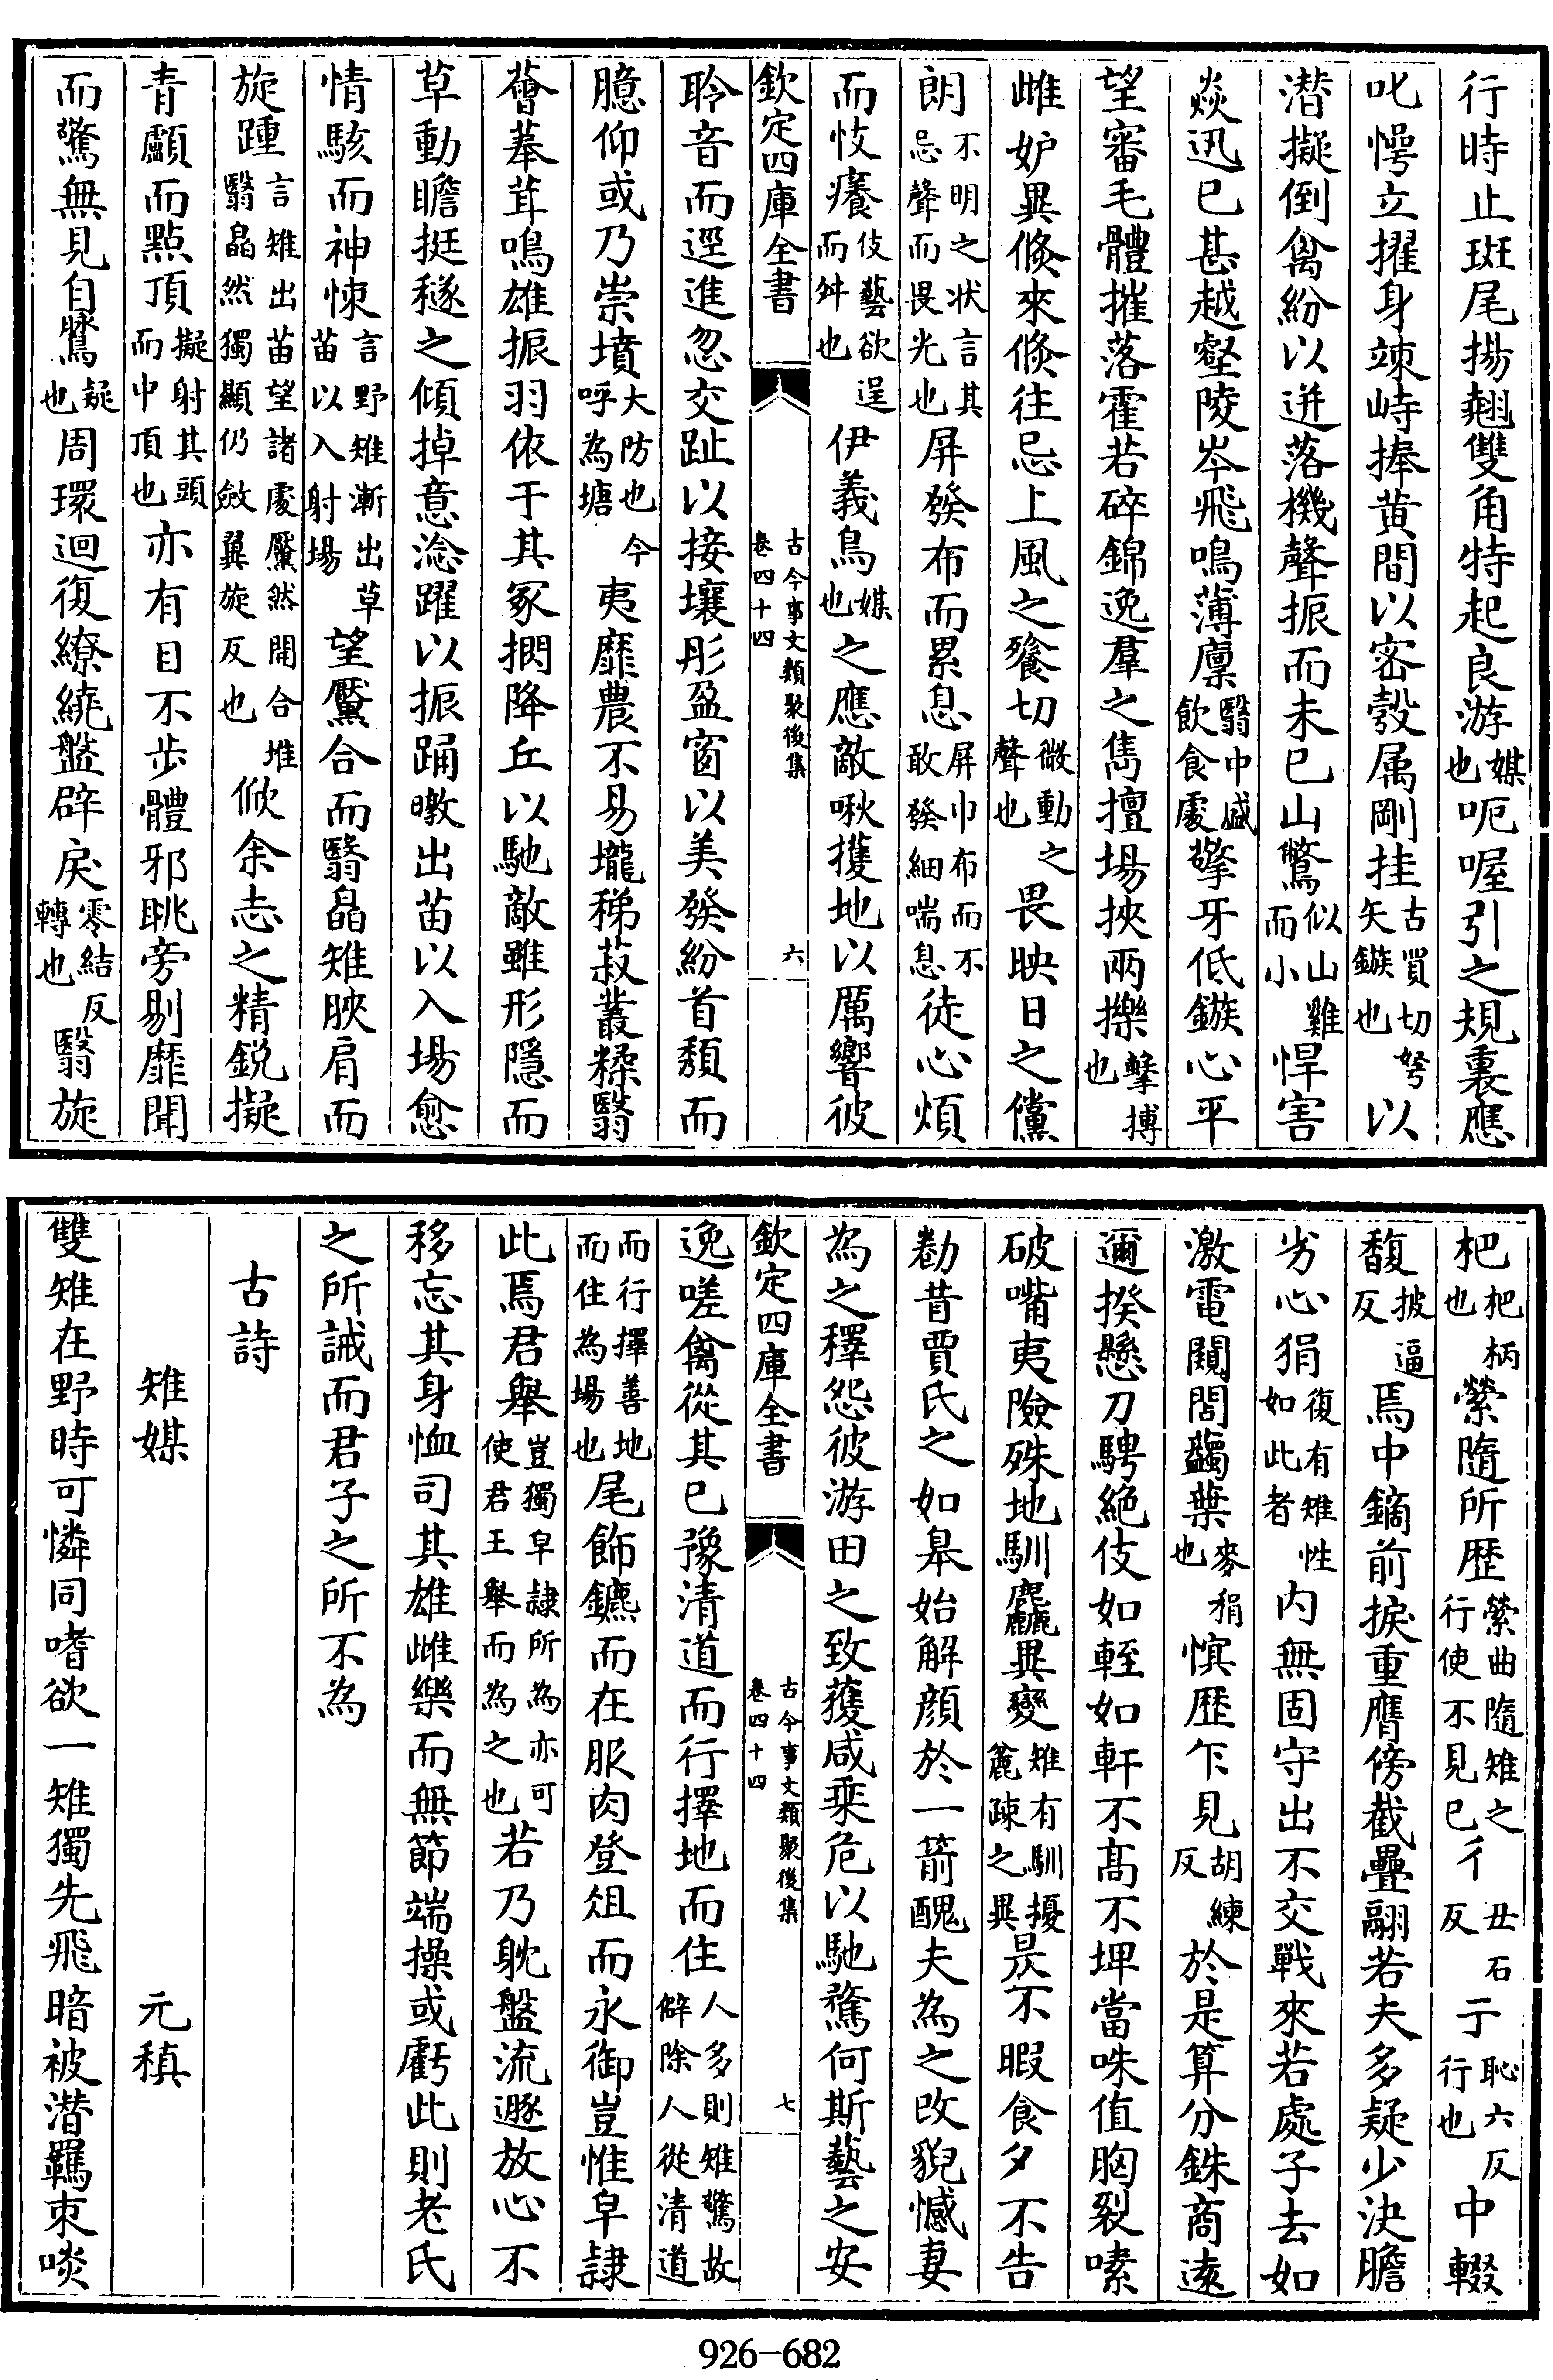 行時止斑尾揚翹雙角特起良游媒也呃喔引之規裏應
叱愕立擢身竦峙捧黄間以密彀属剛挂古買切弩矢鏃也以
潜擬倒禽紛以迸落機聲振而未已山鷩似山雞而小悍害
猋迅已甚越壑陵岑飛鳴薄廩翳中盛飲食處擎牙低鏃心平
望審毛體摧落霍若碎錦逸羣之雋擅場挾兩擽擊搏也
雌妒異倐來倐往忌上風之飱切微動之聲也畏映日之儻
朗不明之状言其忌聲而畏光也屏發布而累息屏巾布而不敢發細喘息徒心煩
而忮癢伎藝欲逞而舛也伊義鳥媒也之應敵啾擭地以厲響彼
欽定四庫全書
古今事文類聚後集
卷四十四
六
聆音而逕進忽交趾以接壤彤盈窗以美發紛首頽而
臆仰或乃崇墳大防也今呼為塘夷靡農不易壠稊菽叢糅翳
薈菶茸鳴雄振羽依于其冢捫降丘以馳敵雖形隱而
草動瞻挺穟之傾掉意淰躍以振踊暾出苗以入場愈
情駭而神悚言野雉漸出草苗以入射場望黶合而翳皛雉脥肩而
旋踵言雉出苗望諸處黶然開合堆翳皛然獨顯仍斂翼旋反也俽余志之精鋭擬
青顱而點頂擬射其頭而中頂也亦有目不步體邪眺旁剔靡聞
而驚無見自鷩疑也周環迴復繚繞盤辟戾零結反轉也翳旋
杷杷柄也縈隨所歴縈曲隨雉之行使不見已彳丑石反亍恥六反行也中輟
馥披逼反焉中鏑前捩重膺傍截疊翮若夫多疑少決膽
劣心狷復有雉性如此者内無固守出不交戰來若處子去如
激電闚閭蠲葉麥稍也愩歴乍見胡練反於是算分銖商逺
邇揆懸刀騁絶伎如輊如軒不髙不埤當咮值胸裂嗉
破嘴夷險殊地馴麤異變雉有馴擾麄疎之異昃不暇食夕不告
勌昔賈氏之如皋始解顔於一箭醜夫為之改貌憾妻
為之釋怨彼游田之致䕶咸乘危以馳騖何斯藝之安
欽定四庫全書
古今事文類聚後集
卷四十四
七
逸嗟禽從其已豫清道而行擇地而住人多則雉驚故僻除人從清道
而行擇善地而住為場也尾飾鑣而在服肉登俎而永御豈惟皁隷
此焉君舉豈獨皁隷所為亦可使君王舉而為之也若乃躭盤流遯放心不
移忘其身恤司其雄雌樂而無節端操或虧此則老氏
之所誡而君子之所不為
古詩
雉媒　元稹
雙雉在野時可憐同嗜欲一雉獨先飛暗被潜羈束啖
926-682